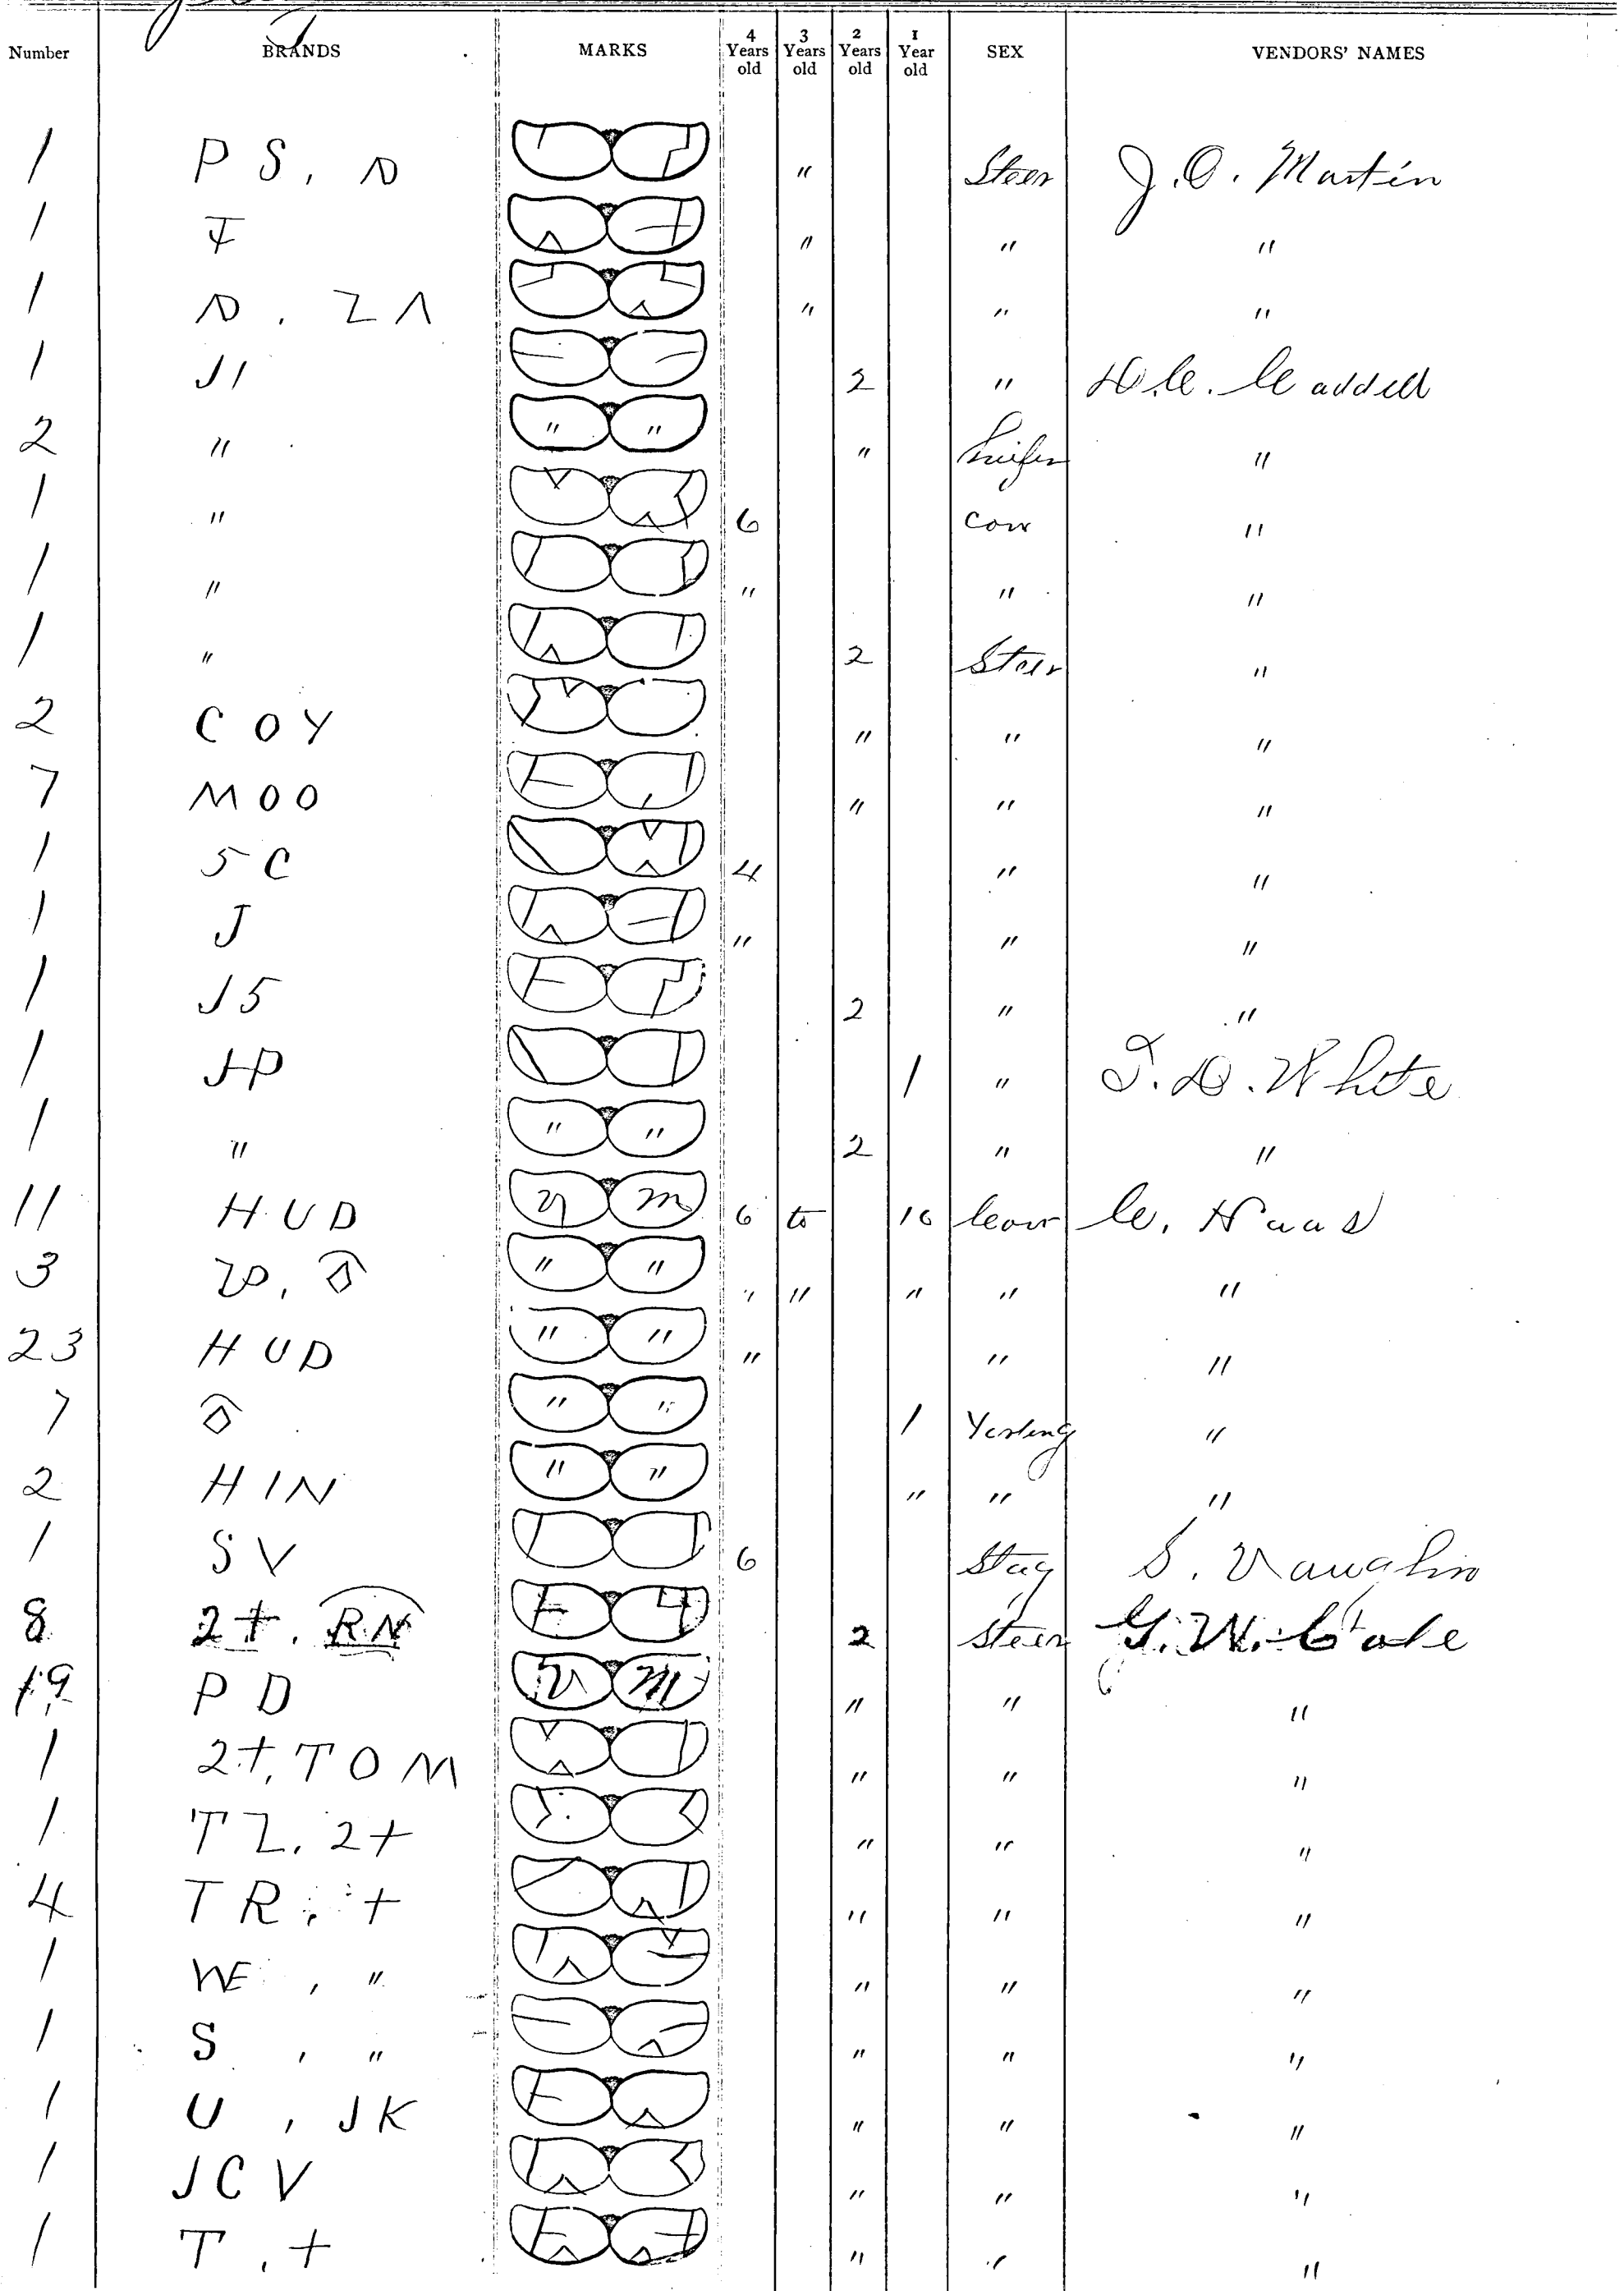 Number BRANDS MARKS 4 Years old 3 Years old 2 Years old 1 Year old SEX VENDORS' NAMES
1 P S, D " Steer J. O. Martin
1 F " " "
1 D, Z Λ " " "
1 J1 2 "
2 " " " " Heifer "
1 " 6 Cow "
1 " " " "
1 " 2 Steer "
2 C O Y " " "
7 M O O " " "
1 5 C 4 " "
1 J " " "
1 J 5 2 " "
1 JP 1 " T. D. White
1 " " " 2 " "
11 H U D m 6 to 10 Cow C. Haas
3 " " " " " " "
23 H U D " " " " "
7 " " 1 Yerling "
2 H I N " " " " "
1 S V 6 Stag S. Vaughn
8 2 +, R N 2 Steer G. W.
19 P D m " " "
1 2 +, T O M " " "
1 T Z, 2 + " " "
4 T R, + " " "
1 W E, " " " "
1 S, " " " "
1 U, J K " " "
1 J C V " " "
1 T, + " " "